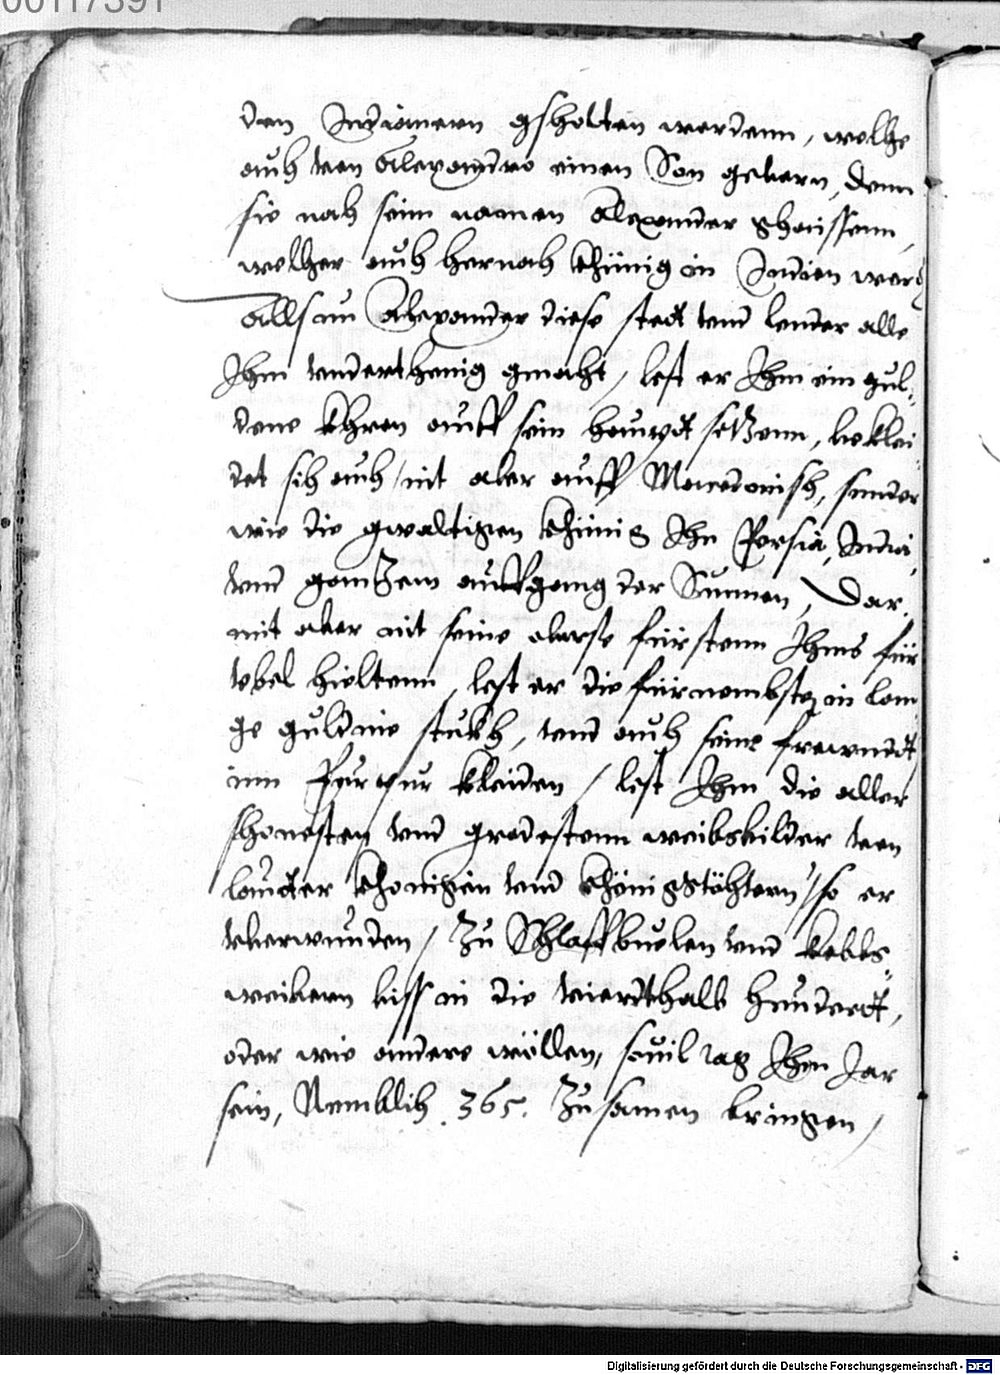 00117391
den Indianern gsholten werdenn, welhe
auh von Alexandro einen Son gebern, denn
sie nah seim namen Alexander ghaissenn,
welher auh hernah khünig in Indien ward
Alls nu Alexander diese stett vnd lender alle
Ihm vnderthenig gmaht, lest er Ihm ein gul-
dene khron auff sein haupt setzenn, beklei-
det sih auh nit aber auff Macedonish, sunder
wie die gwaltigen khünig Inn Persia, India,
vnd gantzem auffgang der Sunnen, Dar-
mit aber nit seine oberste fürstenn Ihms für
vbel hieltenn, lest er die fürnembsten in lan-
ge guldine stukh, vnd auh seine frewndt
inn Purpur kleiden / lest Ihm die aller
shonesten vnd gredestenn weibsbilder von
lautter khonigin vnd khönigstöhtern, so er
vberwunden / Zu Schlaffbuolen vnd kebbs-
weibern biss in die vierdthalb hundertt,
oder wie andere wöllen, souil tag Ihm Jar
sein, Nemblih .365. Zusamen bringen /
Digitalisierung gefördert durch die Deutsche Forschungsgemeinschaft - DFG